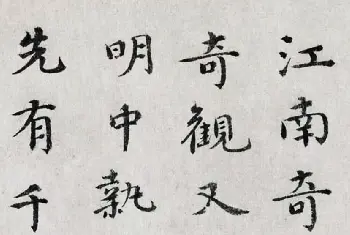 江南奇
奇觀又
明中執
先有千